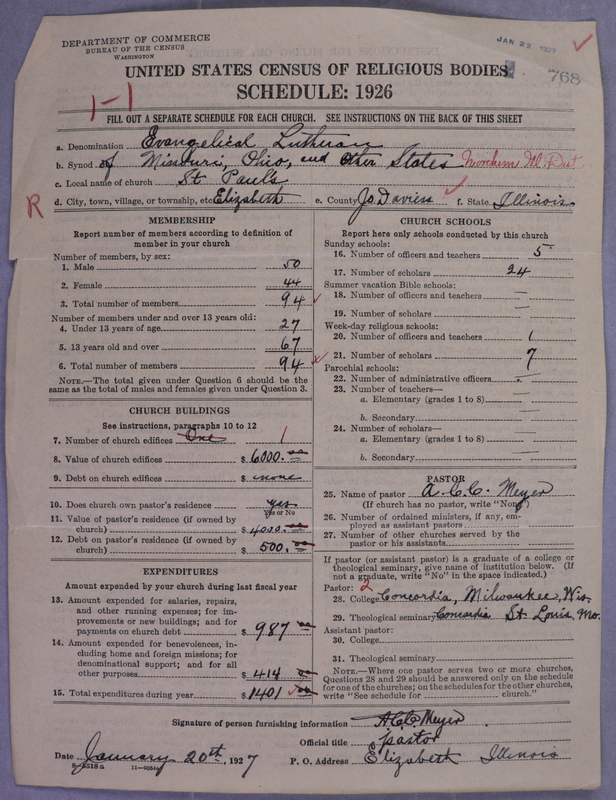 DEPARTMENT OF COMMERCE
BUREAU OF THE CENSUS
WASHINGTON
JAN 22 1927
768
UNITED STATES CENSUS OF RELIGIOUS BODIES
SCHEDULE: 1926
1-1
FILL OUT A SEPARATE SCHEDULE FOR EACH CHURCH. SEE INSTRUCTIONS ON THE BACK OF THIS SHEET
a. Denomination Evangelical Lutheran
b. Synod of Missouri, Ohio, and other States
c. Local name of church St Paul's
d. City, town, village, or township, etc Elizabeth e. County Jo Daviess f. State Illinois
R
MEMBERSHIP
Report number of members according to definition of
member in your church
Number of members, by sex:
1. Male 50
2. Female 44
3. Total number of members 94
Number of members under and over 13 years old:
4. Under 13 years of age 27
5. 13 years old and over 67
6. Total number of members 94
NOTE.—The total given under Question 6 should be the
same as the total of males and females given under Question 3.
CHURCH BUILDINGS
See instructions, paragraphs 10 to 12
7. Number of church edifices One 1
8. Value of church edifices $ 6000.00
9. Debt on church edifices $ none
10. Does church own pastor's residence yes
Yes or No
11. Value of pastor's residence (if owned by
church) $ 4000.00
12. Debt on pastor's residence (if owned by
church) $ 500.00
EXPENDITURES
Amount expended by your church during last fiscal year
13. Amount expended for salaries, repairs,
and other running expenses; for im-
provements or new buildings; and for
payments on church debt $ 987 00
14. Amount expended for benevolences, in-
cluding home and foreign missions; for
denominational support; and for all
other purposes $ 414 00
15. Total expenditures during year $ 1401 00
CHURCH SCHOOLS
Report here only schools conducted by this church
Sunday schools:
16. Number of officers and teachers 5
17. Number of scholars 24
Summer vacation Bible schools:
18. Number of officers and teachers —
19. Number of scholars —
Week-day religious schools:
20. Number of officers and teachers 1
21. Number of scholars 7
Parochial schools:
22. Number of administrative officers —
23. Number of teachers—
a. Elementary (grades 1 to 8) —
b. Secondary —
24. Number of scholars—
a. Elementary (grades 1 to 8) —
b. Secondary —
PASTOR
25. Name of pastor A. C. C. Meyer
(If church has no pastor, write "None")
26. Number of ordained ministers, if any, em-
ployed as assistant pastors
27. Number of other churches served by the
pastor or his assistants
If pastor (or assistant pastor) is a graduate of a college or
theological seminary, give name of institution below. (If
not a graduate, write "No" in the space indicated.)
Pastor: 2
28. College Concordia, Milwaukee, Wis.
29. Theological seminary Concordia St. Louis, Mo.
Assistant pastor:
30. College
31. Theological seminary
NOTE.—Where one pastor serves two or more churches,
Questions 28 and 29 should be answered only on the schedule
for one of the churches; on the schedules for the other churches,
write "See schedule for church."
Signature of person furnishing information A.C.C. Meyer
Official title pastor
Date January 20th, 1927 P. O. Address Elizabeth Illinois